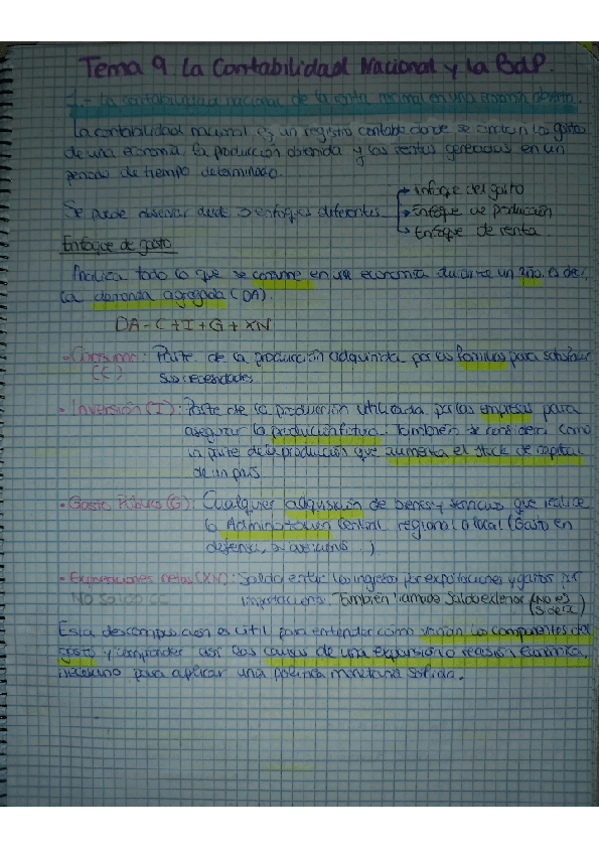 Tema 9. La Contabilidad Nacional y la BdP.
1.- La contabilidad nacional de la renta nacional en una economía abierta.
La contabilidad nacional es un registro contable donde se los gastos
de una economía, la producción obtenida y las rentas generadas en un
periodo de tiempo determinado.
Se puede observar desde 3 enfoques diferentes
Enfoque del gasto
Enfoque de producción
Enfoque de renta
Enfoque de gasto
Analiza todo lo que se consume en una economía durante un año, es decir,
la demanda agregada (DA).
DA = C + I + G + XN
- Consumo: Parte de la producción adquirida por las familias para satisfacer
(C) sus necesidades
- Inversión (I): Parte de la producción utilizada por las empresas para
asegurar la producción futura. También se considera como
la parte de la producción que aumenta el stock de capital
de un país
- Gasto Público (G): Cualquier adquisición de bienes y servicios que realice
la Administración Central, regional o local (Gasto en
defensa, )
- Exportaciones netas (XN): Saldo entre los ingresos por exportaciones y gastos por
importaciones. También llamado saldo exterior
Esta descomposición es útil para entender cómo varían los componentes del
gasto y comprender así las causas de una expansión o recesión económica,
necesario para aplicar una política monetaria sólida.